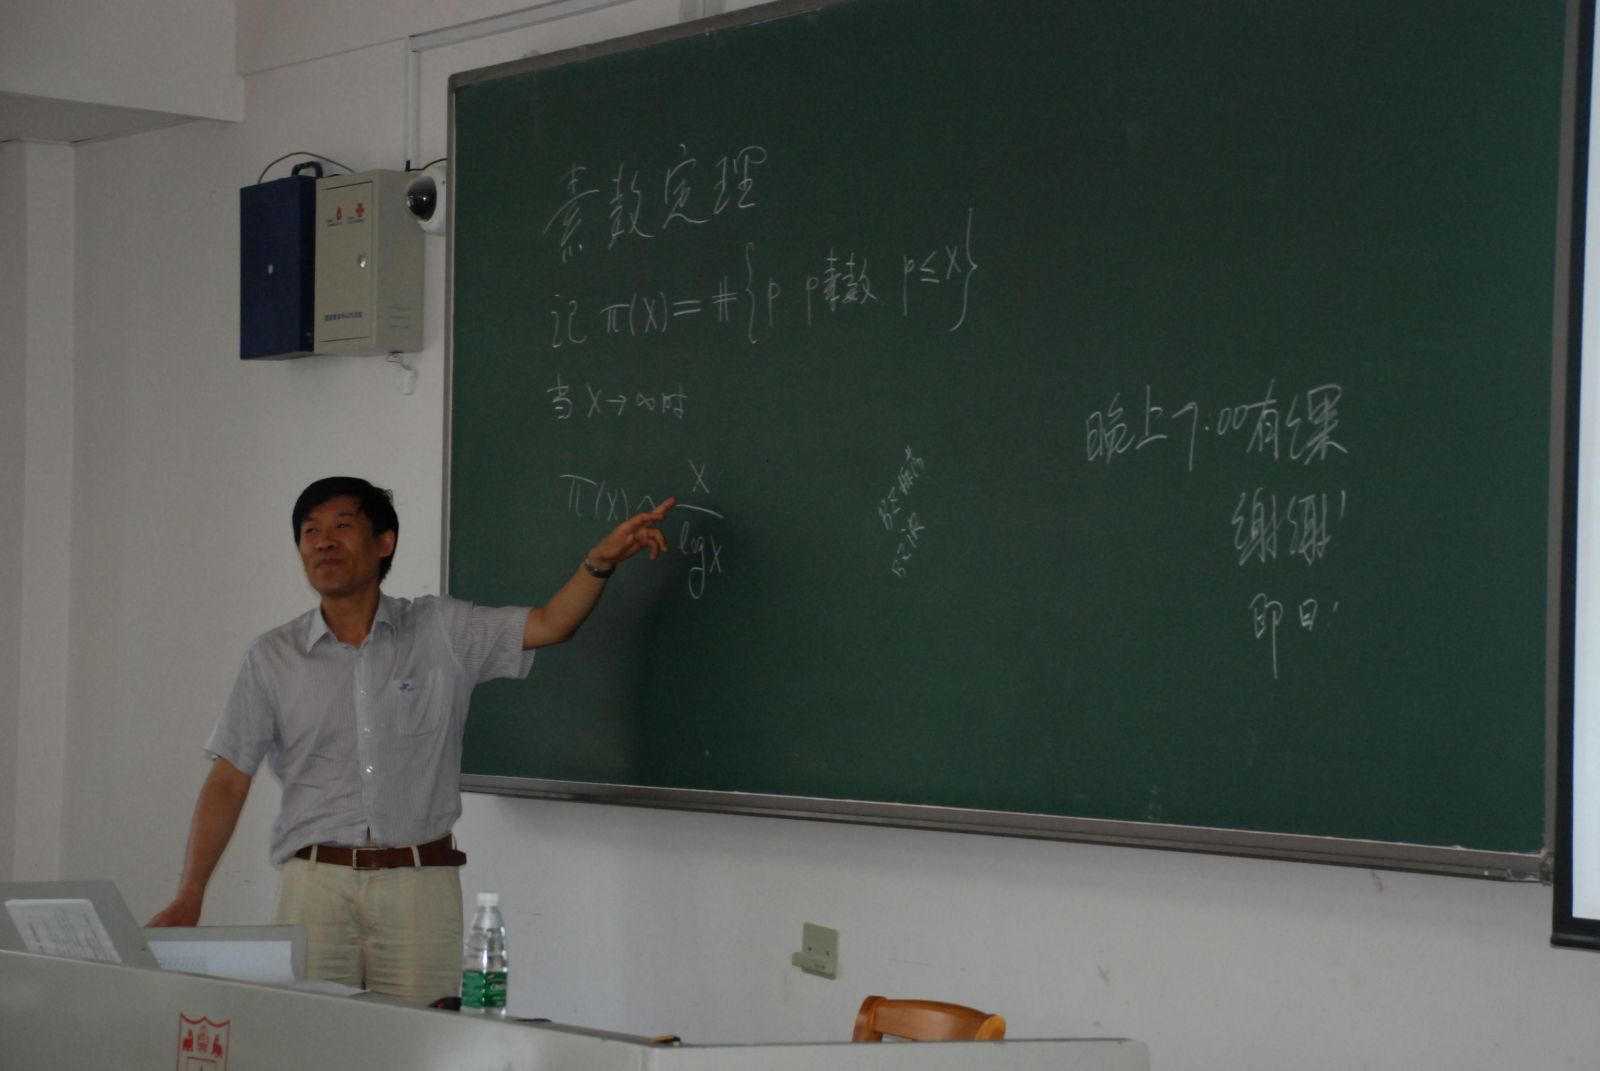 素数定理
记 π(x) = #{p p素数 p≤x}
当 x→∞时
π(x) ~ x/log x
晚上7.00有课
谢谢!
即日!